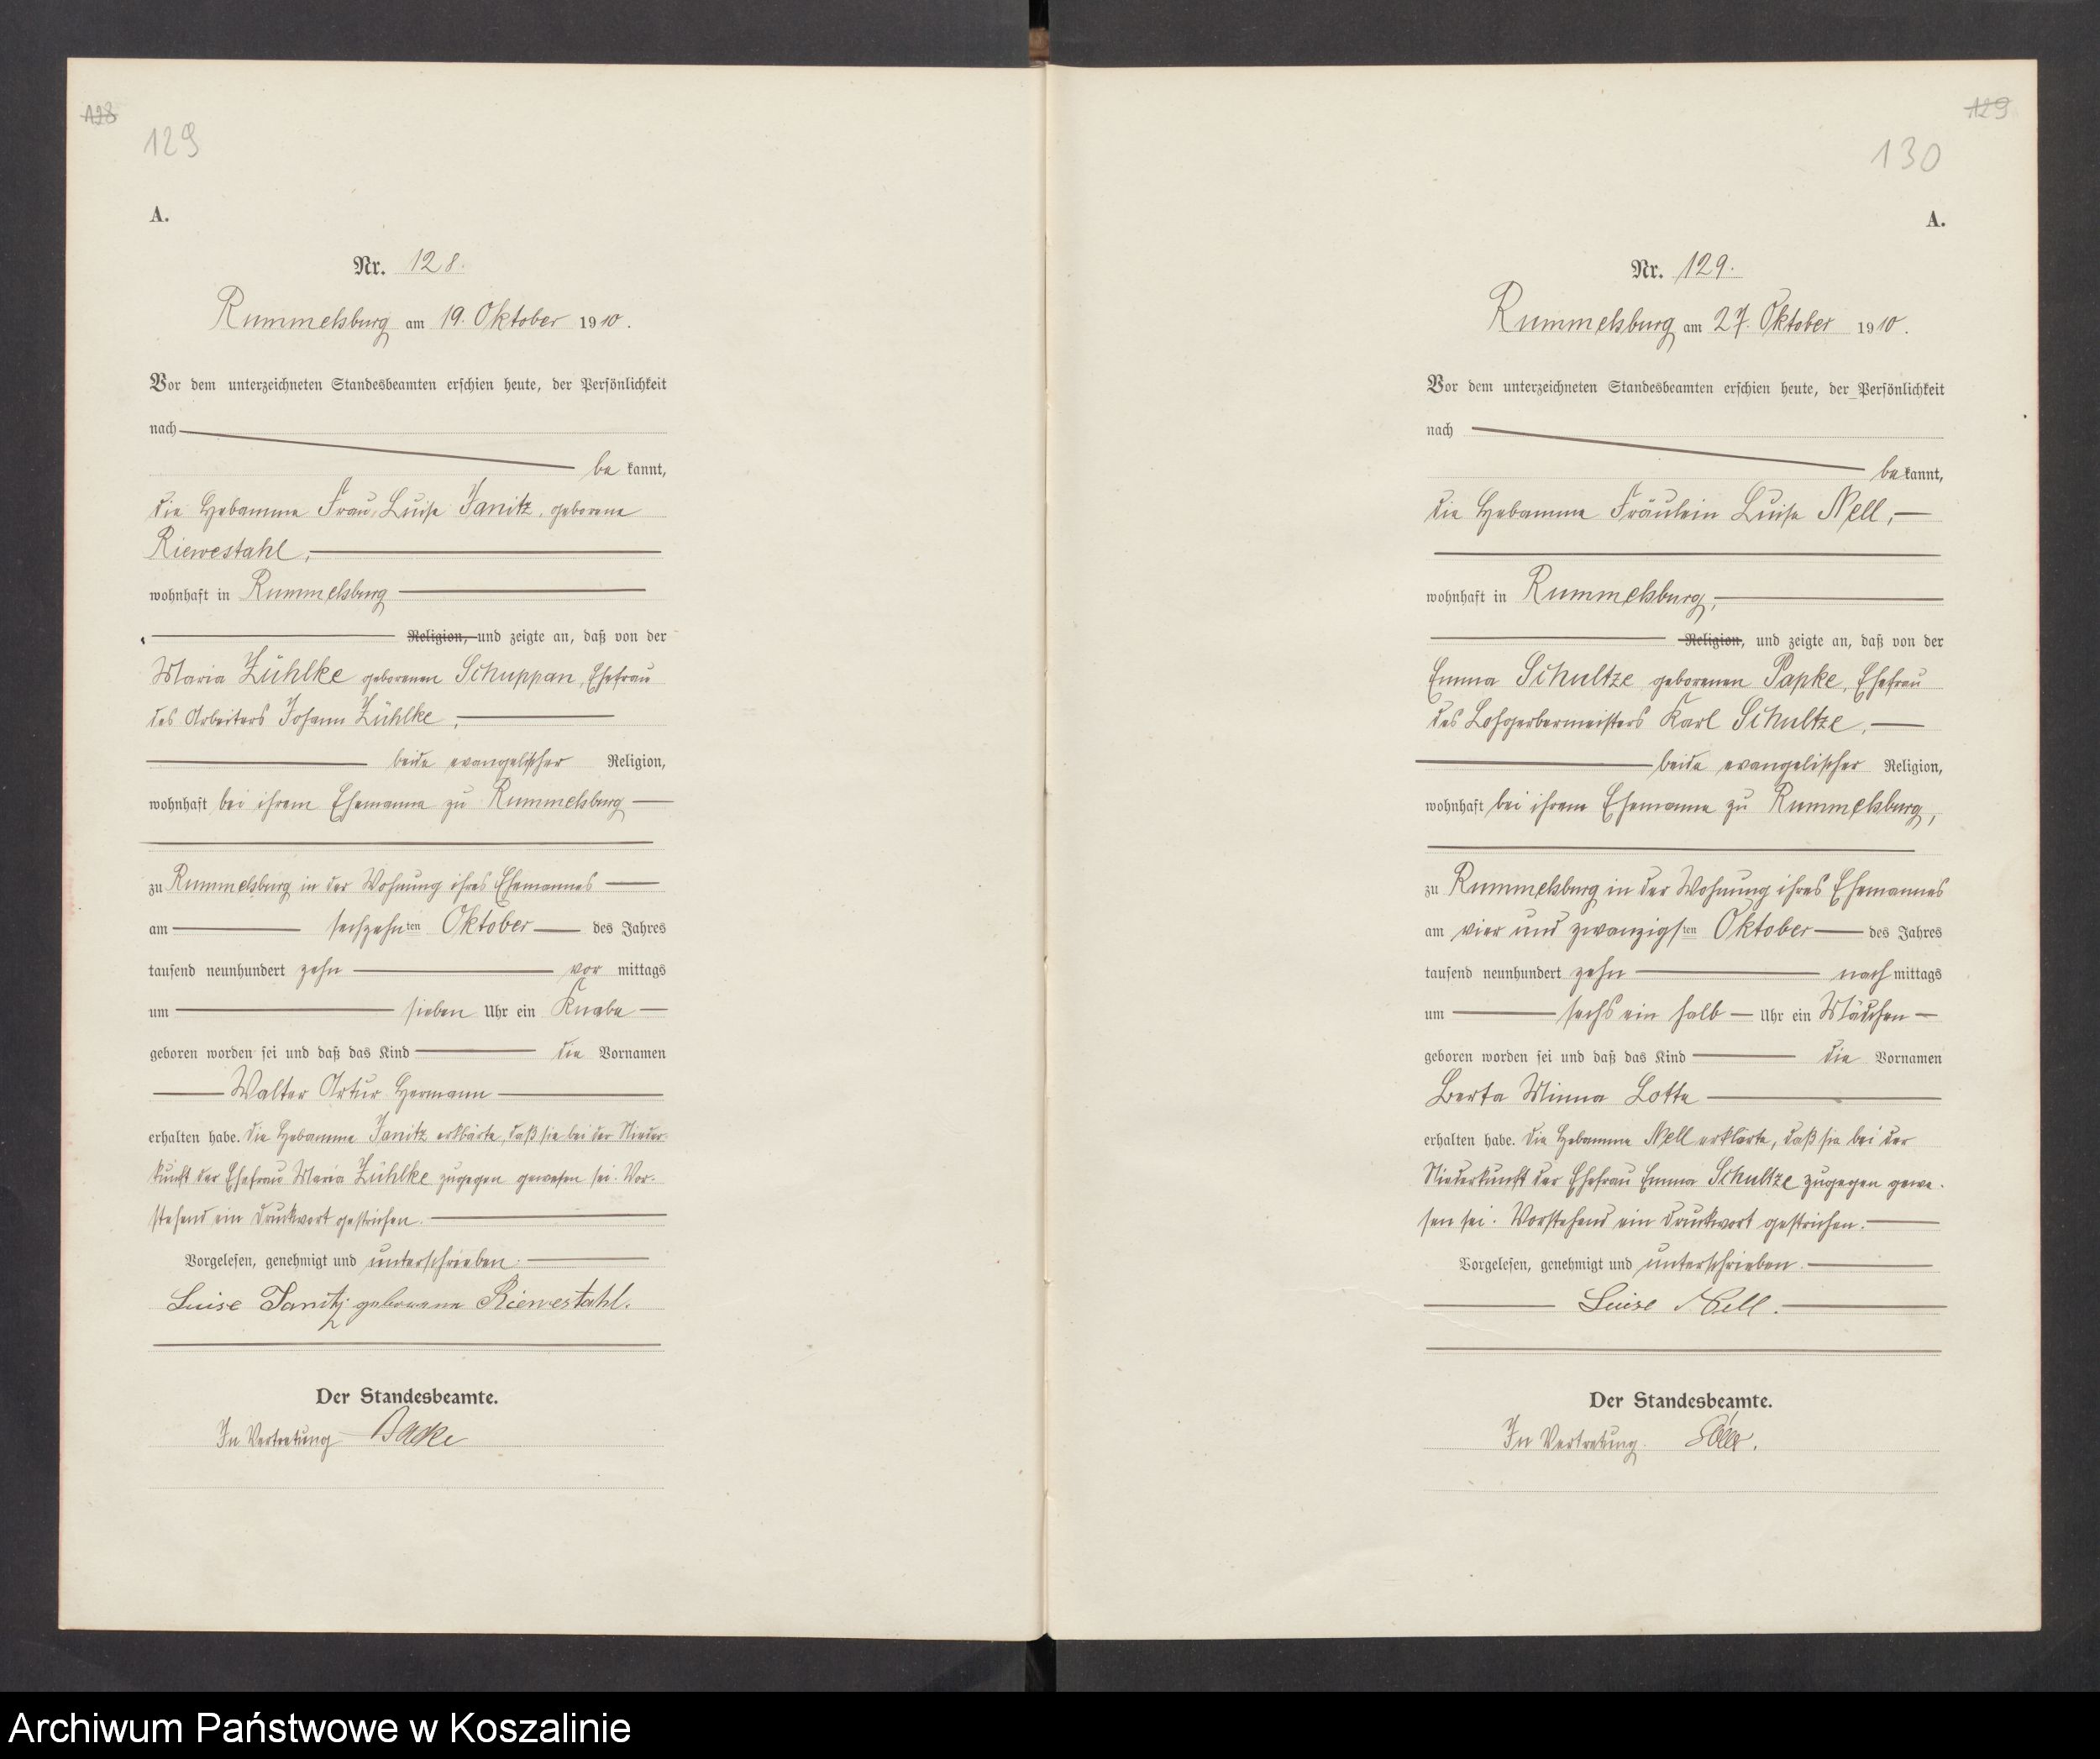 128
129
A.
Nr. 128.
Rummelsburg am 19. Oktober 1910.
Vor dem unterzeichneten Standesbeamten erschien heute, der Persönlichkeit
nach
be kannt,
die Hebamme Frau Luise Janitz, geborene
Riewestahl,
wohnhaft in Rummelsburg
Religion, und zeigte an, daß von der
Maria Zühlke geborenen Schuppan, Ehefrau
des Arbeiters Johann Zühlke,
beide evangelischer Religion,
wohnhaft bei ihrem Ehemanne zu Rummelsburg
zu Rummelsburg in der Wohnung ihres Ehemannes
am sechzehnten Oktober des Jahres
tausend neunhundert zehn vor mittags
um sieben Uhr ein Knabe
geboren worden sei und daß das Kind die Vornamen
Walter Artur Hermann
erhalten habe. Die Hebamme Janitz erklärte, daß sie bei der Nieder-
kunft der Ehefrau Maria Zühlke zugegen gewesen sei. Vor-
stehend ein Druckwort gestrichen.
Vorgelesen, genehmigt und unterschrieben.
Luise Janitz geborene Riewestahl.
Der Standesbeamte.
In Vertretung
129
130
A.
Nr. 129.
Rummelsburg am 27. Oktober 1910.
Vor dem unterzeichneten Standesbeamten erschien heute, der Persönlichkeit
nach
be kannt,
die Hebamme Fräulein Luise Nell,
wohnhaft in Rummelsburg,
Religion, und zeigte an, daß von der
Emma Schultze geborenen Papke, Ehefrau
des Lohgerbermeisters Karl Schultze,
beide evangelischer Religion,
wohnhaft bei ihrem Ehemanne zu Rummelsburg,
zu Rummelsburg in der Wohnung ihres Ehemannes
am vier und zwanzigsten Oktober des Jahres
tausend neunhundert zehn nach mittags
um sechs ein halb Uhr ein Mädchen
geboren worden sei und daß das Kind die Vornamen
Berta Minna Lotte
erhalten habe. Die Hebamme Nell erklärte, daß sie bei der
Niederkunft der Ehefrau Emma Schultze zugegen gewe-
sen sei. Vorstehend ein Druckwort gestrichen.
Vorgelesen, genehmigt und unterschrieben.
Luise Nell.
Der Standesbeamte.
In Vertretung.
Archiwum Państwowe w Koszalinie